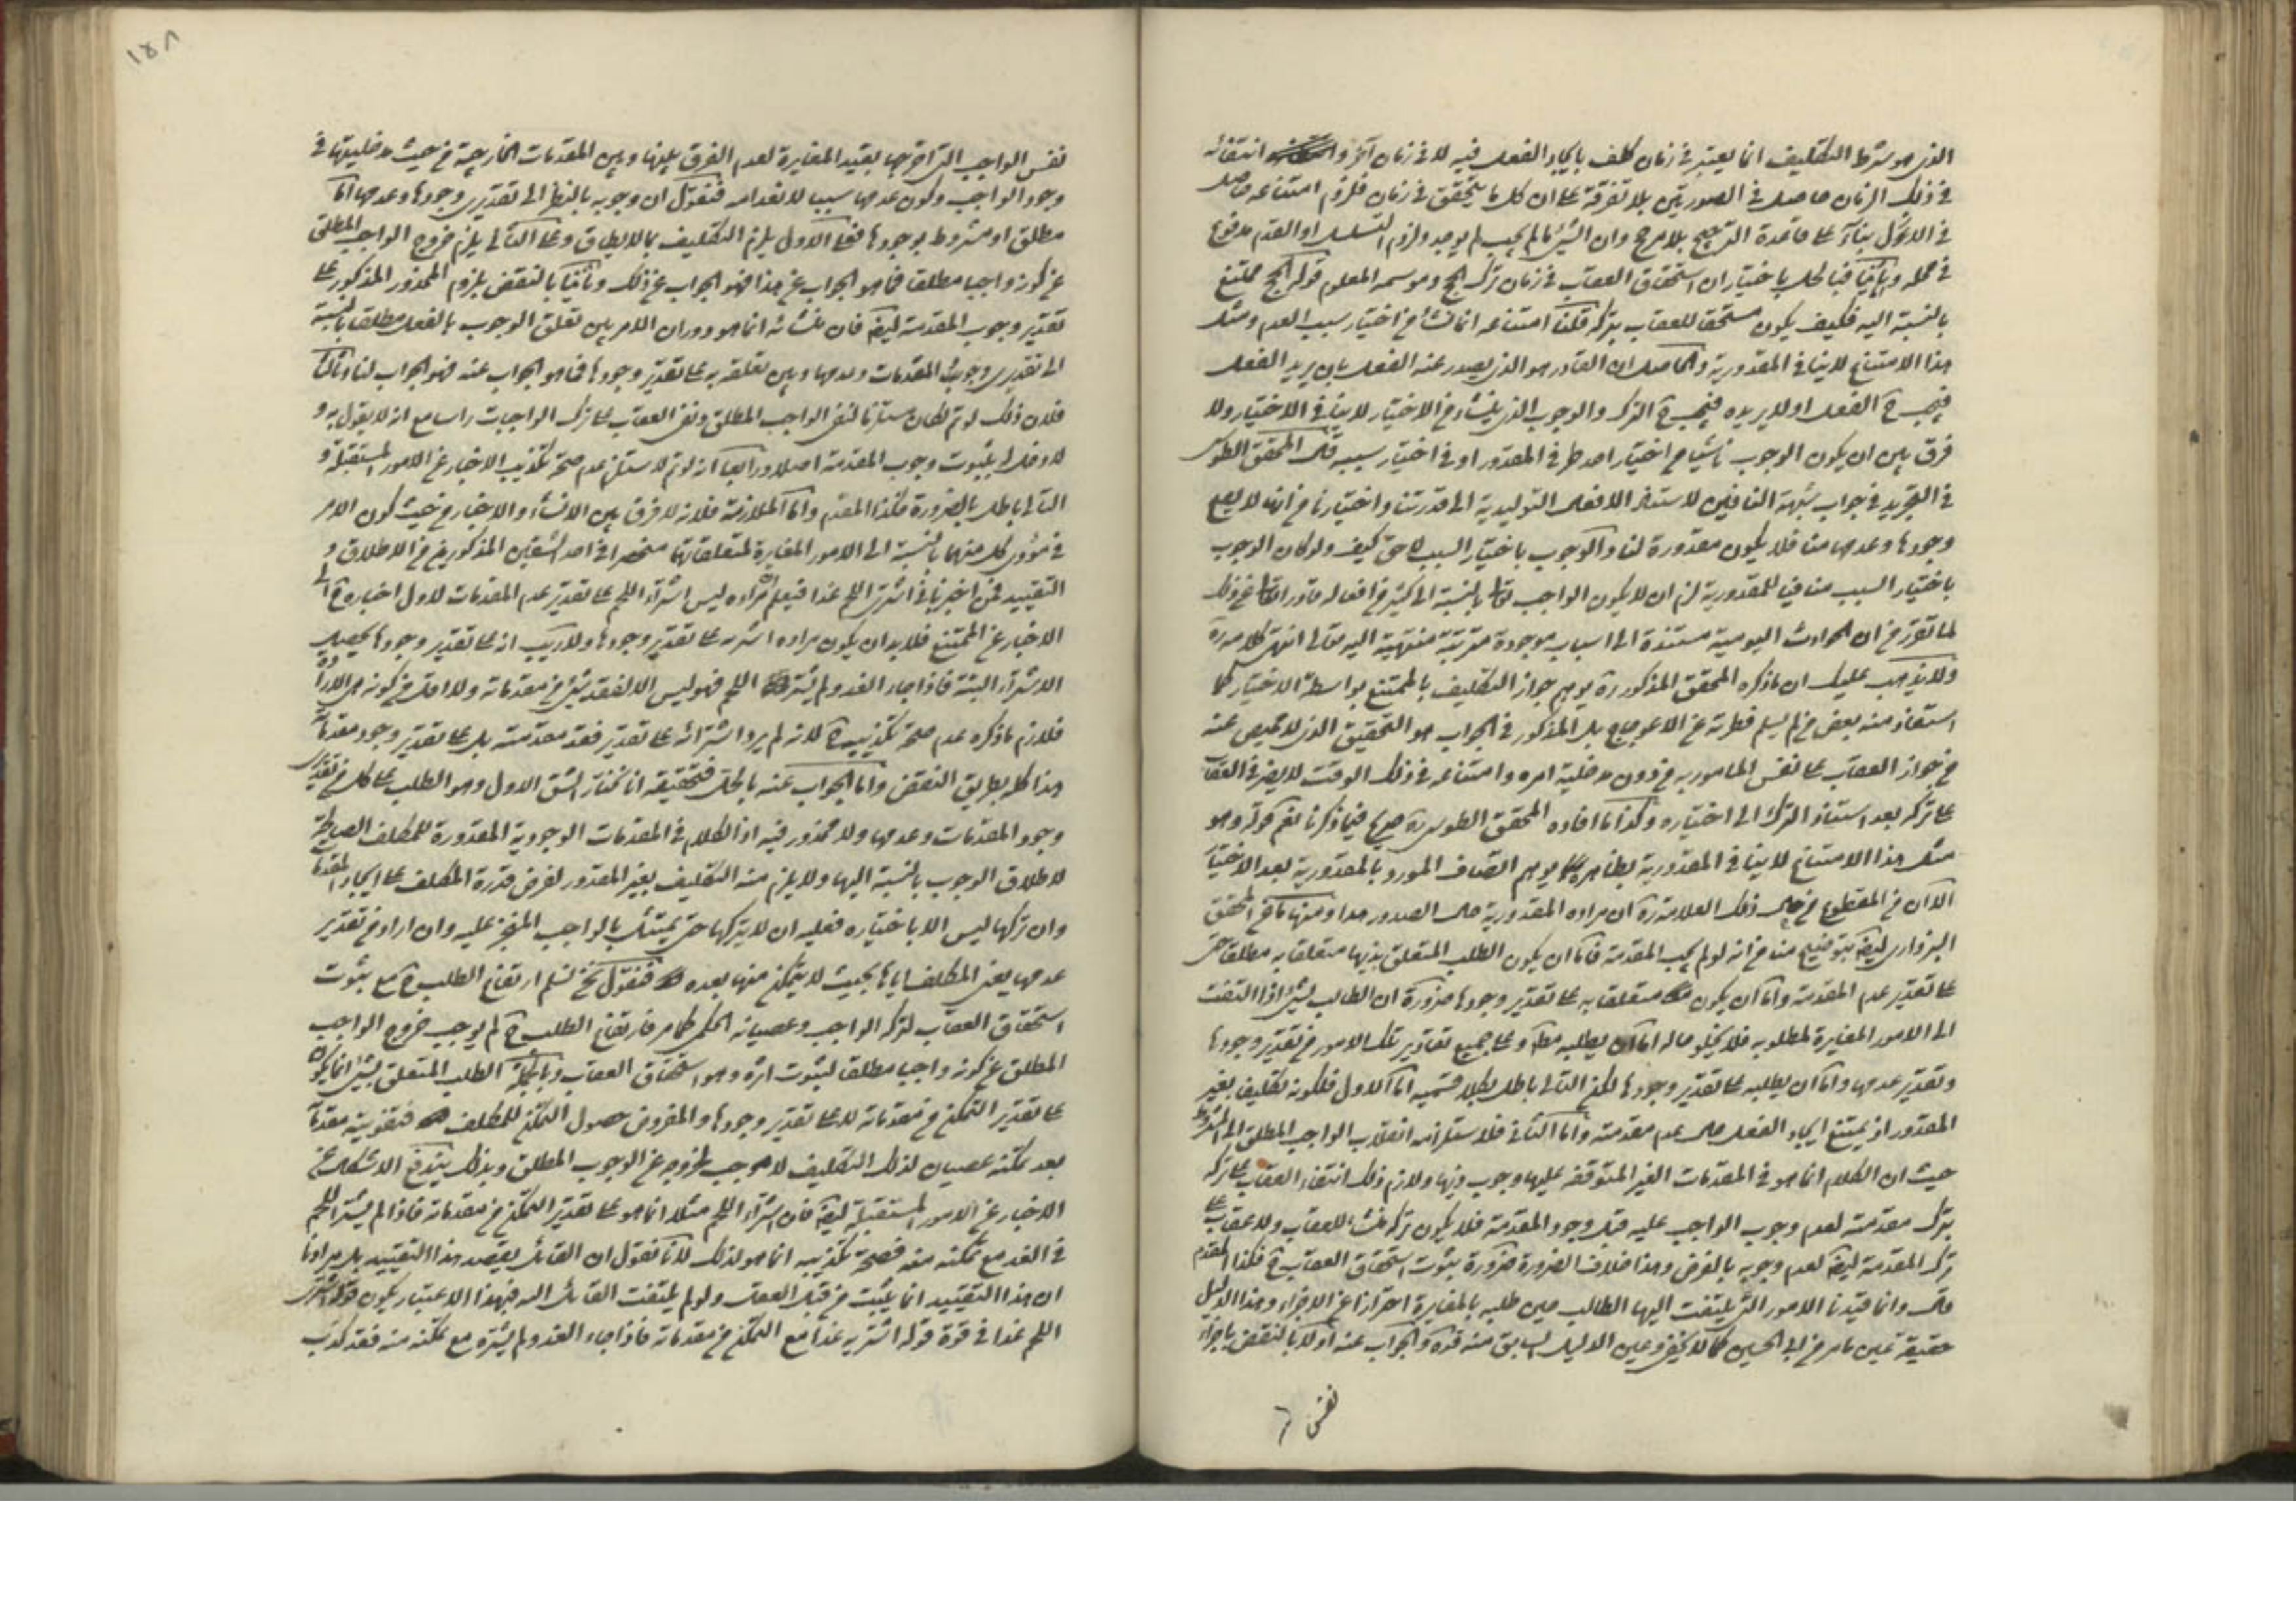 الذى هو شرط التكليف انما يعتبر فى زمان كلف بايجاد الفعل فيه لا فى زمان آخر و انتفائه
فى ذلك الزمان حاصل فى الصورتين بلا تفرقة على ان كل ما يتحقق فى زمان فلزوم امتناعه حاصل
فى الاول بناء على قاعدة الترجيح بلا مرجح وان الشئ ما لم يجب لم يوجد ولزوم التسلسل او القدم مدفوع
فى محله وثانيا فبالحل باختيار ان استحقاق العقاب فى زمان ترك الحج وموسمه المعلوم قوله الحج ممتنع
بالنسبة اليه فكيف يكون مستحقا للعقاب بتركه قلنا امتناعه انما نشأ من اختيار سبب العدم ومثل
هذا الامتناع لا ينافى المقدورية والحاصل ان القادر هو الذى يصدر عنه الفعل بان يريد الفعل
فيجب ح الفعل او لا يريده فيجب ح الترك والوجوب الذى ينشأ من الاختيار لا ينافى الاختيار ولا
فرق بين ان يكون الوجوب ناشيا من اختيار احد طرفى المقدور او فى اختيار سببه قال المحقق الطوسى
فى التجريد فى جواب شبهة النافين لاستناد الافعال التوليدية الى قدرتنا واختيارنا من انها لا يصح
وجودها وعدمها منا فلا يكون مقدورة لنا والوجوب باختيار السبب لاحق كيف ولو كان الوجوب
باختيار السبب منافيا للمقدورية لزم ان لا يكون الواجب تعا بالنسبة الى كثير من افعاله قادرا تعا عن ذلك
لما تقرر من ان الحوادث اليومية مستندة الى اسباب موجودة مترتبة منتهية اليه تعالى انتهى كلامه ره
ولا يذهب عليك ان ما ذكره المحقق المذكور ره يوهم جواز التكليف بالممتنع بواسطة الاختيار كما
استفاد منه بعض من لم يسلم فطرته عن الاعوجاج بل المذكور فى الجواب هو التحقيق الذى لا محيص عنه
من جواز العقاب على نفس المامور به من دون مدخلية امره وامتناعه فى ذلك الوقت لا يضر فى العقاب
على تركه بعد استناد الترك الى اختياره وكذا ما افاده المحقق الطوسى ره صريح فيما ذكرنا نعم قوله وهو
مثل هذا الامتناع لا ينافى المقدورية بظاهره يوهم اتصاف المورد بالمقدورية بعد الاختيار
الا ان من المقطوع من حال ذلك العلامة ره ان مراده المقدورية حال الصدور هذا ومنها ما من المحقق
السبزوارى ايضا بتوضيح منا من انه لو لم يجب المقدمة فاما ان يكون الطلب المتعلق بذيها متعلقا به مطلقا حتى
على تقدير عدم المقدمة واما ان يكون متعلقا به على تقدير وجودها ضرورة ان الطالب لشئ اذا التفت
الى الامور المغايرة لمطلوبه فلا يخلو حاله اما ان يطلبه مط وعلى جميع تقادير تلك الامور من تقدير وجودها
وتقدير عدمها واما ان يطلبه على تقدير وجودها لكن التالى باطل بكلا قسميه اما الاول فلكونه تكليف بغير
المقدور اذ يمتنع ايجاد الفعل حال عدم مقدمته واما الثانى فلاستلزامه انقلاب الواجب المطلق الى المشروط
حيث ان الكلام انما هو فى المقدمات الغير المتوقفه عليها وجوب ذيها ولازم ذلك انتفاء العقاب على تركه
بترك مقدمته لعدم وجوب الواجب عليه قبل وجود المقدمة فلا يكون تركه منشأ للعقاب ولا عقاب على
ترك المقدمة ايضا لعدم وجوبه بالفرض وهذا خلاف الضرورة ضرورة ثبوت استحقاق العقاب ح فكذا المقدم
قال وانما قيدنا الامور التى يلتفت اليها الطالب حين طلبه بالمغايرة احترازا عن الاجزاء وهذا الدليل
حقيقة عين ما مر من ابى الحسين كما لا يخفى وعين الدليل السابق منه قده والجواب عنه اولا بالنقض باجزاء
نفس
١٥٨
نفس الواجب التى اخرجها بقيد المغايرة لعدم الفرق بينها وبين المقدمات الخارجية من حيث مدخليتها فى
وجود الواجب وكون عدمها سببا لانعدامه فنقول ان وجوبه بالنظر الى تقديرى وجودها وعدمها اما
مطلق او مشروط بوجودها فعلى الاول يلزم التكليف بما لا يطاق وعلى الثانى يلزم خروج الواجب المطلق
عن كونه واجبا مطلقا فما هو الجواب عن هذا فهو الجواب عن ذلك وثانيا بالنقض بلزوم المحذور المذكور على
تقدير وجوب المقدمة ايضا فان منشائه انما هو دوران الامر بين تعلق الوجوب بالفعل مطلقا بالنسبة
الى تقديرى وجود المقدمات وعدمها وبين تعلقه به على تقدير وجودها فما هو الجواب عنه فهو الجواب لنا وثالثا
فلان ذلك لو تم لكان مستلزما لنفى الواجب المطلق ونفى العقاب على ترك الواجبات راسا مع انه لا يقول به و
لا دخل له بثبوت وجوب المقدمة اصلا ورابعا انه لو تم لاستلزم عدم صحة تكذيب الاخبار عن الامور المستقبلة و
التالى باطل بالضرورة فكذا المقدم واما الملازمة فلانه لا فرق بين الانشاء والاخبار من حيث كون الامر
فى مؤدى كل منهما بالنسبة الى الامور المغايرة لمتعلقاتهما منحصرا فى احد الشقين المذكورين من الاطلاق و
التقييد فمن اخبر بانى اشترى اللحم غدا فيعلم ان مراده ليس اشتراء اللحم على تقدير عدم المقدمات لاول اخباره ح الى
الاخبار عن الممتنع فلا بد ان يكون مراده اشتريه على تقدير وجودها ولا ريب انه على تقدير وجودها يحصل
الاشتراء البتة فاذا جاء الغد ولم يشتر اللحم فهو ليس الا لفقد شئ من مقدماته ولا اقل من كونه هى الارادة
فلازم ما ذكره عدم صحة تكذيبه ح لانه لم يرد اشترائه على تقدير فقد مقدمته بل على تقدير وجود مقدماته
هذا كله بطريق النقض واما الجواب عنه بالحل فتحقيقه انا نختار الشق الاول وهو الطلب على كل من تقديرى
وجود المقدمات وعدمها ولا محذور فيه اذ الكلام فى المقدمات الوجودية المقدورة للمكلف الصالحة
لاطلاق الوجوب بالنسبة اليها ولا يلزم منه التكليف بغير المقدور لفرض قدرة المكلف على ايجاد المقدمة
وان تركها ليس الا باختياره فعليه ان لا يتركها حتى يمتثل بالواجب المنجز عليه وان اراد من تقدير
عدمها يعنى المكلف اياها بحيث لا يتمكن منها بعده فنقول نحن نسلم ارتفاع الطلب ح مع ثبوت
استحقاق العقاب لتركه الواجب وعصيانه الحكمى كما مر فارتفاع الطلب ح لم يوجب خروج الواجب
المطلق عن كونه واجبا مطلقا لثبوت اثره وهو استحقاق العقاب وبالجملة الطلب المتعلق بشئ انما يكون
على تقدير التمكن من مقدماته لا على تقدير وجودها والمفروض حصول التمكن للمكلف فتفويته مقدمة
بعد تمكنه عصيان لذلك التكليف لا موجب لخروجه عن الوجوب المطلق وبذلك يندفع الاشكال عن
الاخبار عن الامور المستقبلة ايضا فان اشتراء اللحم مثلا انما هو على تقدير التمكن من مقدماته فاذا لم يشتر اللحم
فى الغد مع تمكنه منه فصحة تكذيبه انما هو لذلك لانا نقول ان القائل يقصد هذا التقييد بل مرادنا
ان هذا التقييد انما يثبت من قبل العقل ولو لم يلتفت القائل اليه فبهذا الاعتبار يكون قوله اشترى
اللحم غدا فى قوة قوله اشتريه غدا مع التمكن من مقدماته فاذا جاء الغد ولم يشتره مع تمكنه منه فقد كذب